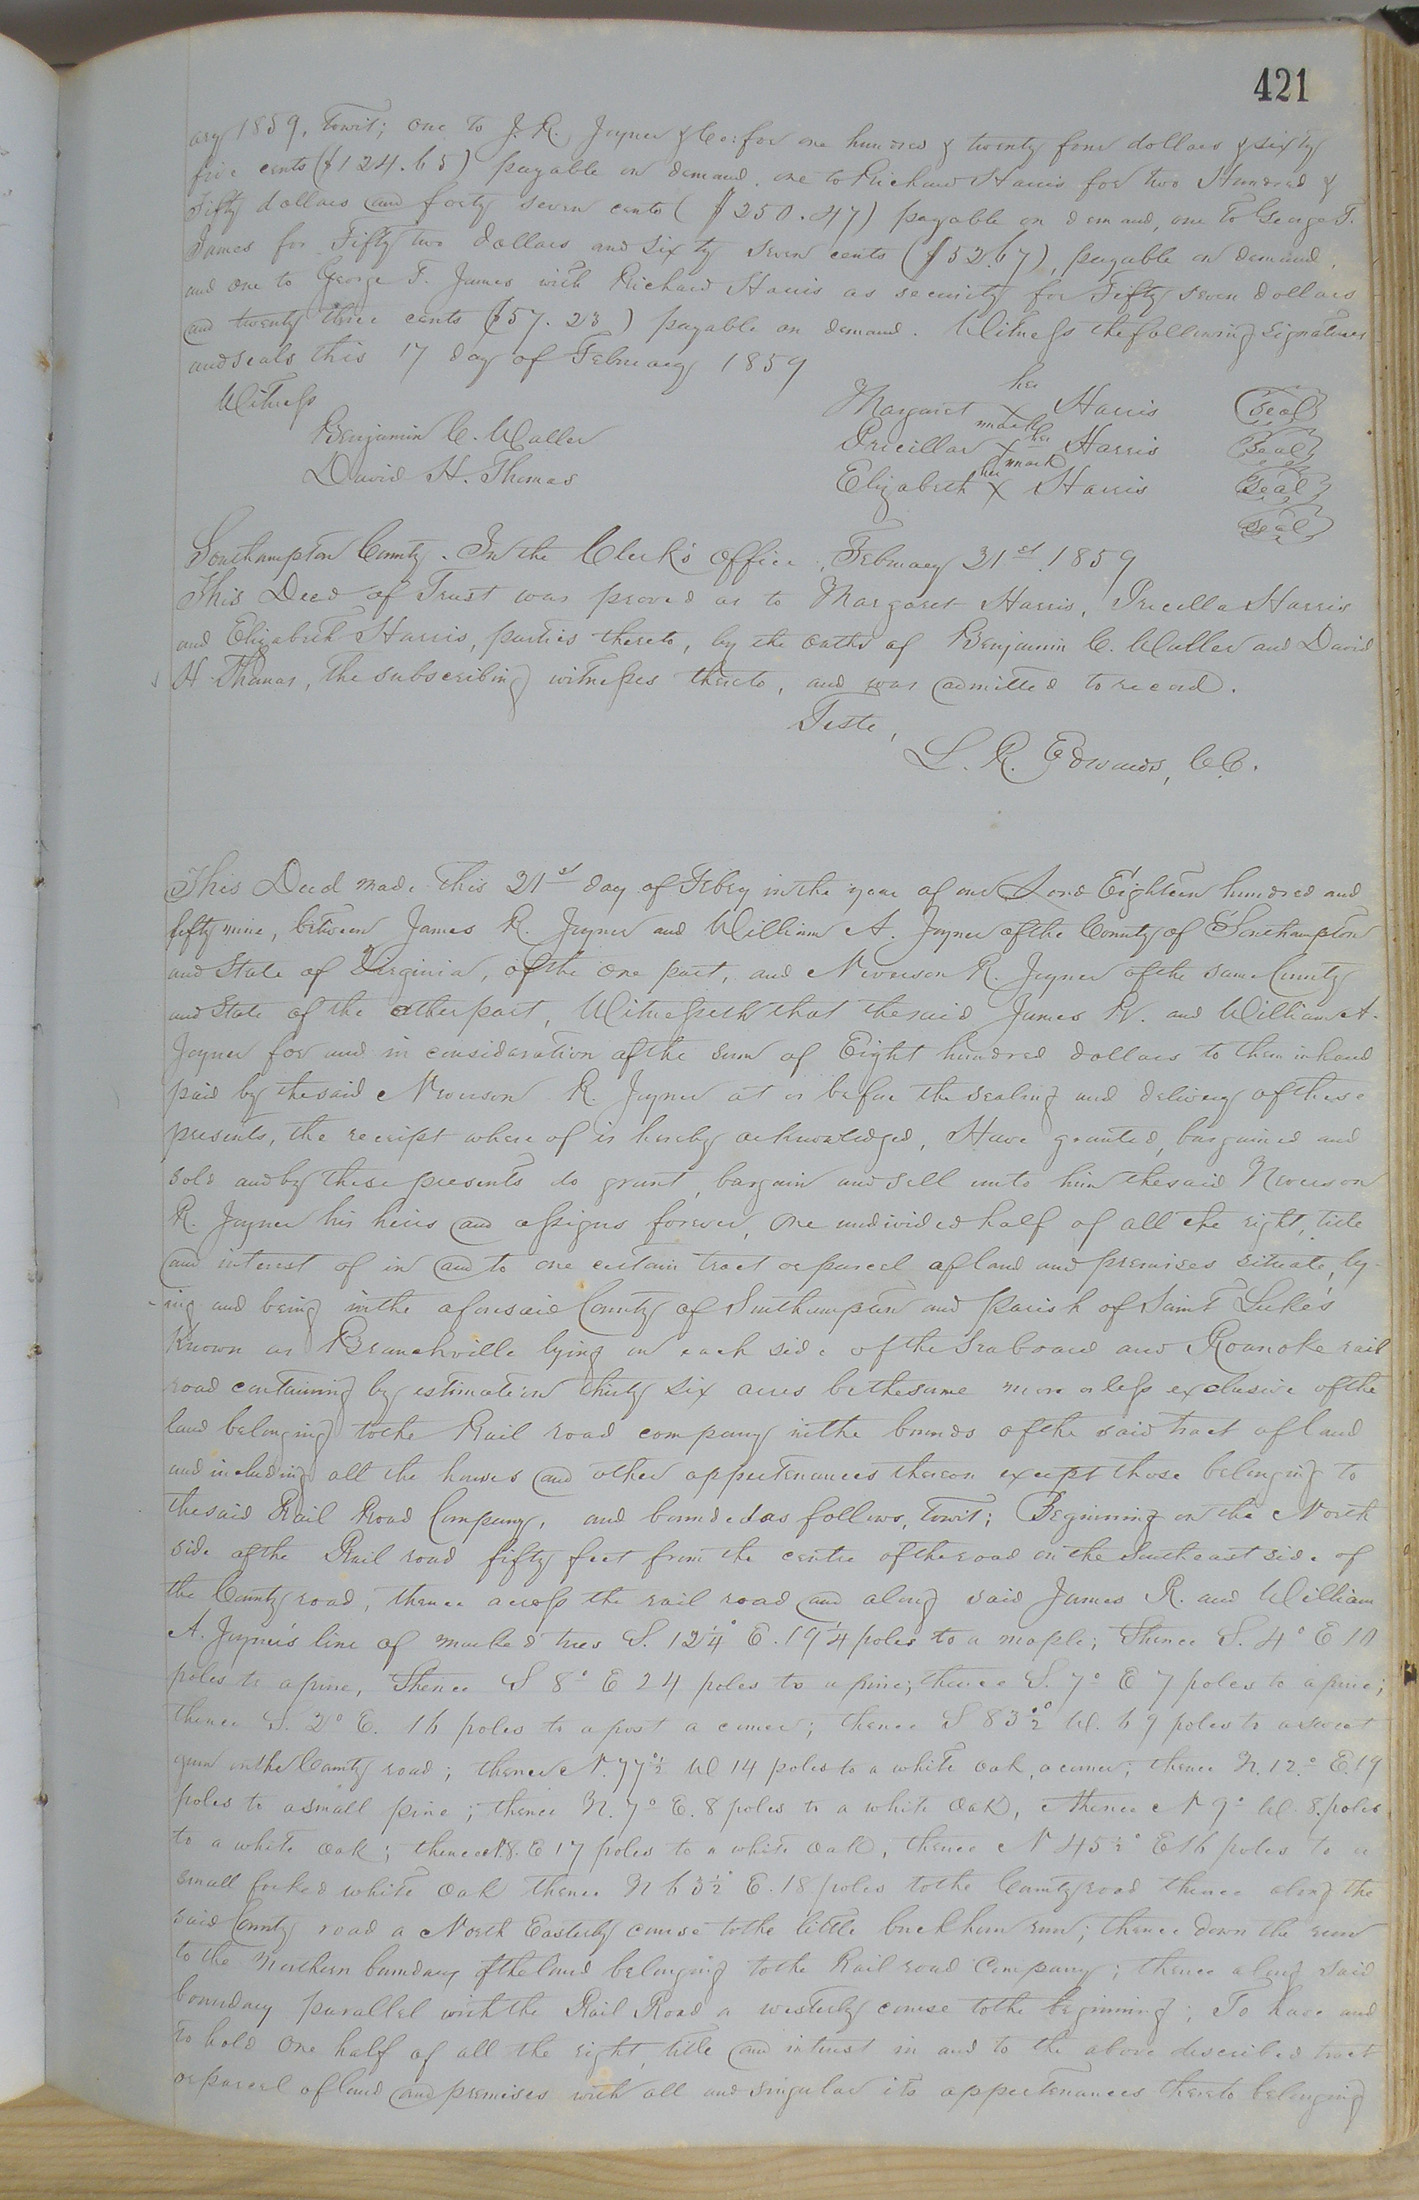 421
ary 1859, towit; one to J. R. Joyner & Co: for one hundred & twenty four dollars & sixty
five cents ($124.65) payable on demand, one to Richard Harris for two Hundred &
Fifty dollars and forty seven cents ($250.47) payable on demand, one to George T.
James for Fifty two dollars and sixty seven cents ($52.67), payable on demand,
and one to George T. James with Richard Harris as security for Fifty seven dollars
and twenty three cents ($57.23) payable on demand. Witness the following signatures
and seals this 17 day of February 1859
Witness
her
Margaret X Harris (Seal)
mark
Benjamin C. Waller
her
Pricillar X Harris (Seal)
mark
David H. Thomas
her
Elizabeth X Harris (Seal)
(Seal)
Southampton County. In the Clerk's Office, February 21st 1859
This Deed of Trust was proved as to Margaret Harris, Pricella Harris
and Elizabeth Harris, parties thereto, by the oaths of Benjamin C. Waller and David
H. Thomas, the subscribing witnesses thereto, and was admitted to record.
Teste,
L. R. Edwards, C.C.
This Deed made this 21st day of Febry in the year of our Lord Eighteen hundred and
fifty nine, between James R. Joyner and William A. Joyner of the County of Southampton
and State of Virginia, of the one part, and Newerson R. Joyner of the same County
and State of the other part, Witnesseth that the said James R. and William A.
Joyner for and in consideration of the sum of Eight hundred dollars to them in hand
paid by the said Newerson R. Joyner at or before the sealing and delivery of these
presents, the receipt where of is hereby acknowledged, Have granted, bargained and
sold and by these presents do grant, bargain and sell unto him the said Newerson
R. Joyner his heirs and assigns forever, one undivided half of all the right, title
and interest of in and to one certain tract or parcel of land and premises situate, ly-
ing and being in the aforesaid County of Southampton and parish of Saint Luke's
Known as Branchville lying on each side of the Seaboard and Roanoke rail
road containing by estimation thirty six acres be the same more or less exclusive of the
land belonging to the Rail road company in the bounds of the said tract of land
and including all the houses and other appertenances thereon except those belonging to
the said Rail Road Company, and bounded as follows, towit; Beginning on the North
side of the Rail road fifty feet from the centre of the road on the Southeast side of
the County road, thence across the rail road and along said James R. and William
A. Joyner's line of marked trees S. 12¼° E. 19¼ poles to a maple; Thence S. 4° E 10
poles to a pine, Thence S 8° E 24 poles to a pine; thence S. 7° E 7 poles to a pine;
thence S. 2° E. 16 poles to a post a corner; thence S 83½° W. 69 poles to a sweet
gum on the County road; thence N. 77½° W 14 poles to a white oak, a corner; thence N. 12° E. 19
poles to a small pine; thence N. 7° E. 8 poles to a white oak, thence N 9° W. 8 poles
to a white oak; thence N 8. E 17 poles to a white oak, thence N 45½° E 16 poles to a
small forked white oak thence N 63½° E. 18 poles to the County road thence along the
said County road a North Easterly course to the little buckhorn run; thence down the run
to the Northern boundary of the land belonging to the Rail road Company; thence along said
boundary parallel with the Rail Road a westerly course to the beginning; To have and
to hold one half of all the right, title and interest in and to the above described tract
or parcel of land and premises with all and singular its appertenances thereto belonging